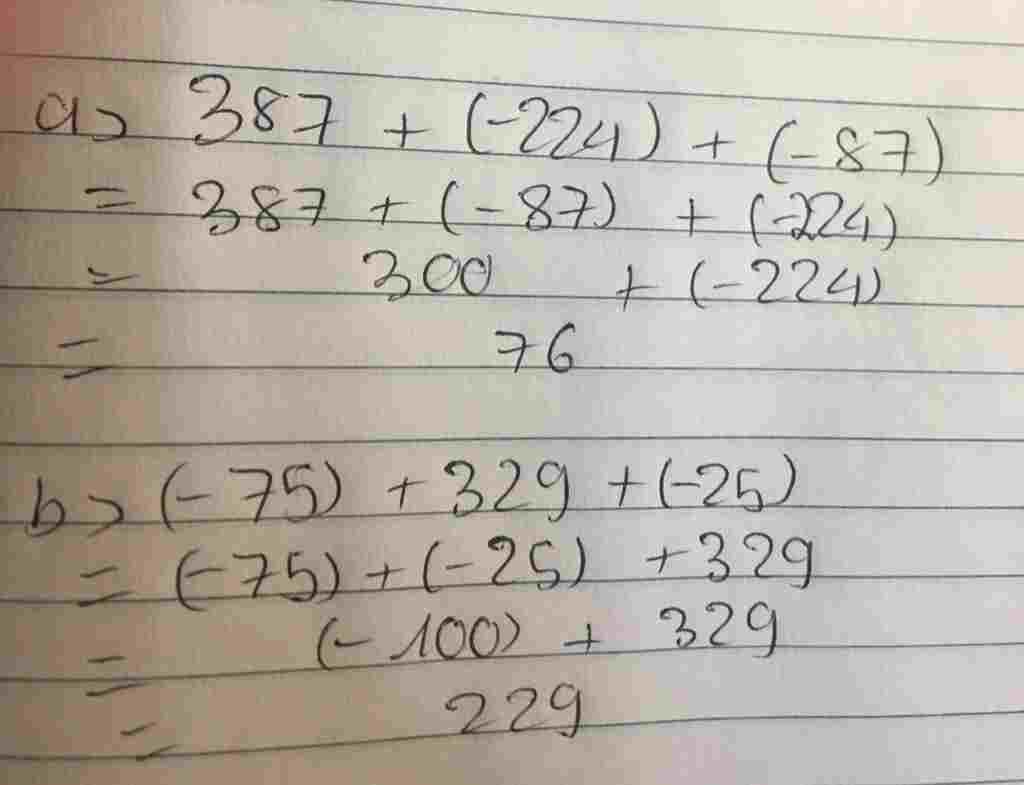 a> 387 + (-224) + (-87)
= 387 + (-87) + (-224)
= 300 + (-224)
= 76
b> (-75) + 329 + (-25)
= (-75) + (-25) + 329
= (-100) + 329
= 229